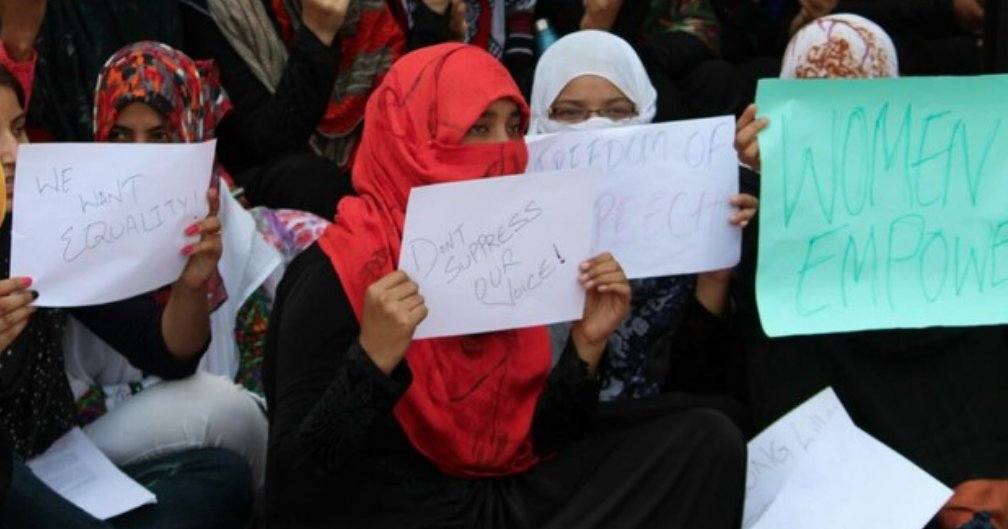 WE
WANT
EQUALITY!
DONT
SUPPRESS
OUR
VOICE!
FREEDOM OF
PEECH
WOMEN
EMPOWE